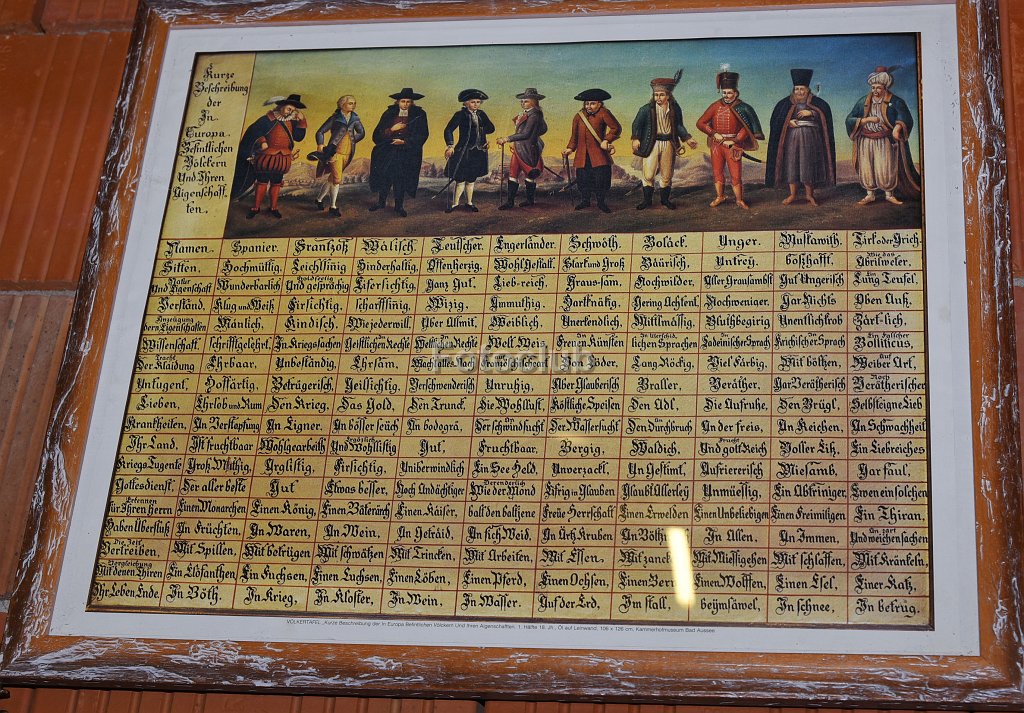 Kurze
Beschreibung
der
In
Europa
Befintlichen
Völckern
Und Ihren
Aigenschaff-
ten.
Namen. Spanier. Frantzoß Wälisch. Teutscher. Engerländer. Schwöth. Boläck. Unger. Muskawith. Tirk oder Grich.
Sitten. Hochmüttig, Leichtsinig Hinderhaltig, Offenherzig, Wohl Gestalt, Stark und Groß Bäurisch, Untrey, boßhafft, Wie das Abrilweter.
Natur Und Eigenschaft Wunderbarlich Holdseelig Und gesprächig Eifersichtig, Ganz Gut, Lieb-reich, Graus-sam, Hochwilder, Aller Grausambst Gut Ungerisch Ein Lung Teufel.
Verständ. Klug und Weiß Firsichtig, scharffsinig, Wizig, Anmuthig, Hartnäkig, Gering Achtent, Nochweniger, Gar Nichts Oben Auß,
Anzeigung deren Eigenschaften Mänlich, Kindisch, Wie jederwill, Über Allmit, Weiblich, Unerkendlich, Mittlmässig, Bluthbegirig Unentlich krob Zärt-lich,
Wissenschaft, schrifftgelehrt, In Kriegssachen Geistlichen Rechte Weltlichen Rechte Welt Weis, Freyen Künsten lichen Sprachen Ladeinischer Sprach Krichischer Sprach In Falscher Bolliticus,
Tracht Der Klaidung Ehrbaar, Unbeständig, Ehrsam, Lang Röckig, Viel Färbig, Mit böltzen, Auf Weiber Art,
Untugent, Hoffärtig, Betrügerisch, Geilsichtig, Verschwenderisch Unruhig, Aber Glauberisch Braller, Veräther, Gar Verätherisch Noch Verätherischer
Lieben, Ehrlob und Rum Den Krieg, Das Gold, Den Trunck, Die Wohllust, Köstliche Speisen Den Adl, Die Aufruhe, Den Brügl, Selbsteigne Lieb
Krankheiten, An Verstopfung An Eigner, An bösser seüch An bodogrä, Der schwindsucht Der Wassersucht Den Durchbruch An der freis, An Keichen, An Schwachheit
Ihr Land. Ist fruchtbaar Wohlgearbeith Und Wohllistig Gut, Fruchtbaar, Bergig, Waldich, Und golt Reich Voller Eiß, Ein Liebreiches
Kriegs Tugente Groß Mithig, Arglistig, Firsichtig, Uniberwindlich Ein See Held, Unverzackt, Un Gestimt, Aufriererisch Miesamb, Gar faul,
Gottesdienst, Der aller beste Gut Etwas besser, Noch Andächtiger Veränderlich Wie der Mond Eifrig in Glauben Glaubt Allerley Unmüessig, Ein Abtriniger, Ewen ein solchen
Erkennen für Ihren Herrn Einen Monarchen Einen König, Einen Päterärch Einen Kaiser, bald den bald jene Freüe Herrschaft Einen Erwelden Einen Unbeliebigen Einen Freimiligen Ein Thiran,
Haben Überfluß An Früchten, An Waren, An Wein, An Getraid, An fich Weid, An Ärtz Kruben An Bölth An Allen, An Immen, An zart Und weichen sachen
Die Zeit Vertreiben, Mit Spillen, Mit betrügen Mit schwätzen Mit Trincken, Mit Arbeiten, Mit Essen, Mit zanck Mit Miessigehen Mit schlaffen, Mit Kränkeln,
Vergleichung Mit denen Thiren Ein Elöfanthen Ein Fuchsen, Einen Luchsen, Einen Löben, Einen Pferd, Einen Ochsen, Einen Bern Einen Wolffen, Einen Esel, Einer Katz,
Ihr Leben Ende. In Böth. In Krieg, In Kloster, In Wein, In Wasser, Auf der Erd, Im stall, beÿm sawel, In schnee, In betrug,
VÖLKERTAFEL „Kurze Beschreibung der in Europa Befintlichen Völckern Und Ihren Aigenschafften. 1. Hälfte 18. Jh., Öl auf Leinwand, 106 x 126 cm, Kammerhofmuseum Bad Aussee